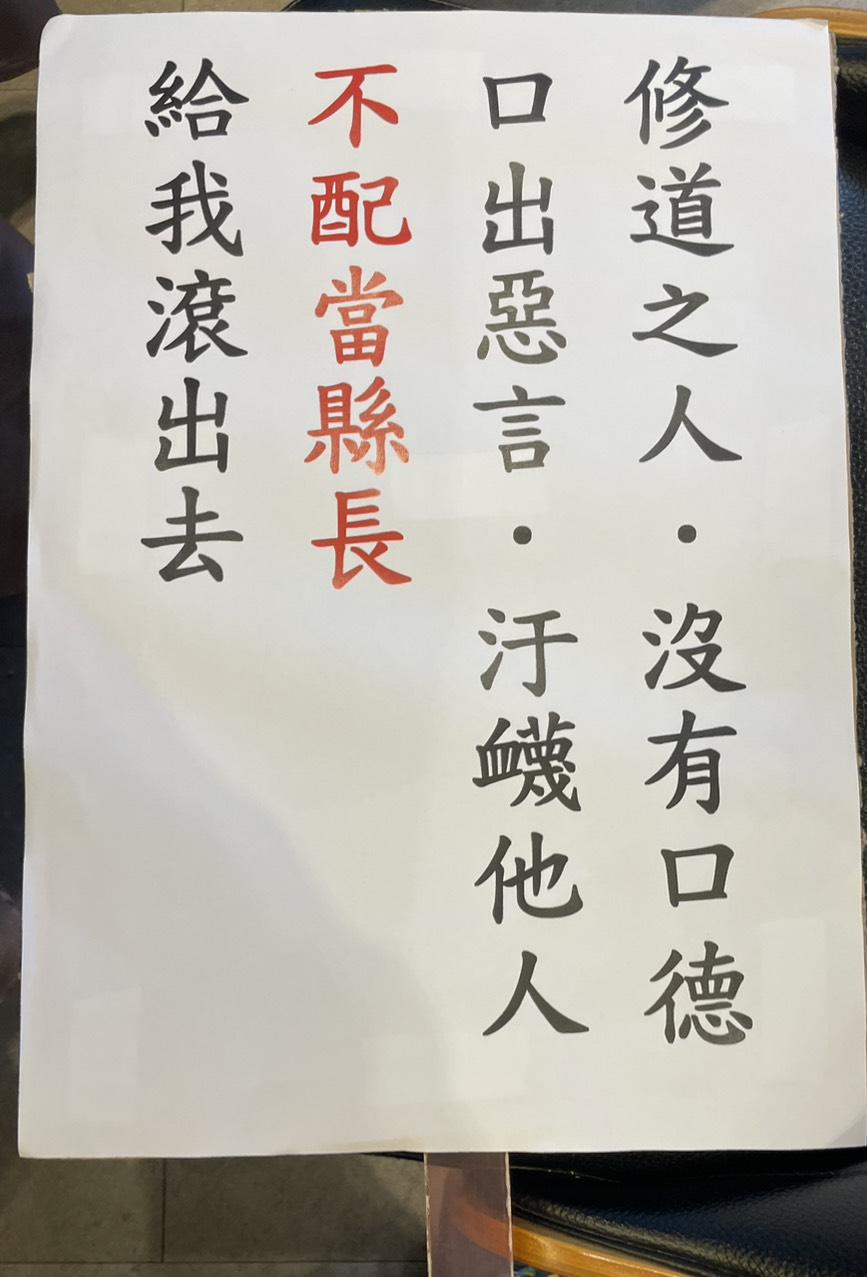 修道之人·沒有口德
口出惡言·汙衊他人
不配當縣長
給我滾出去